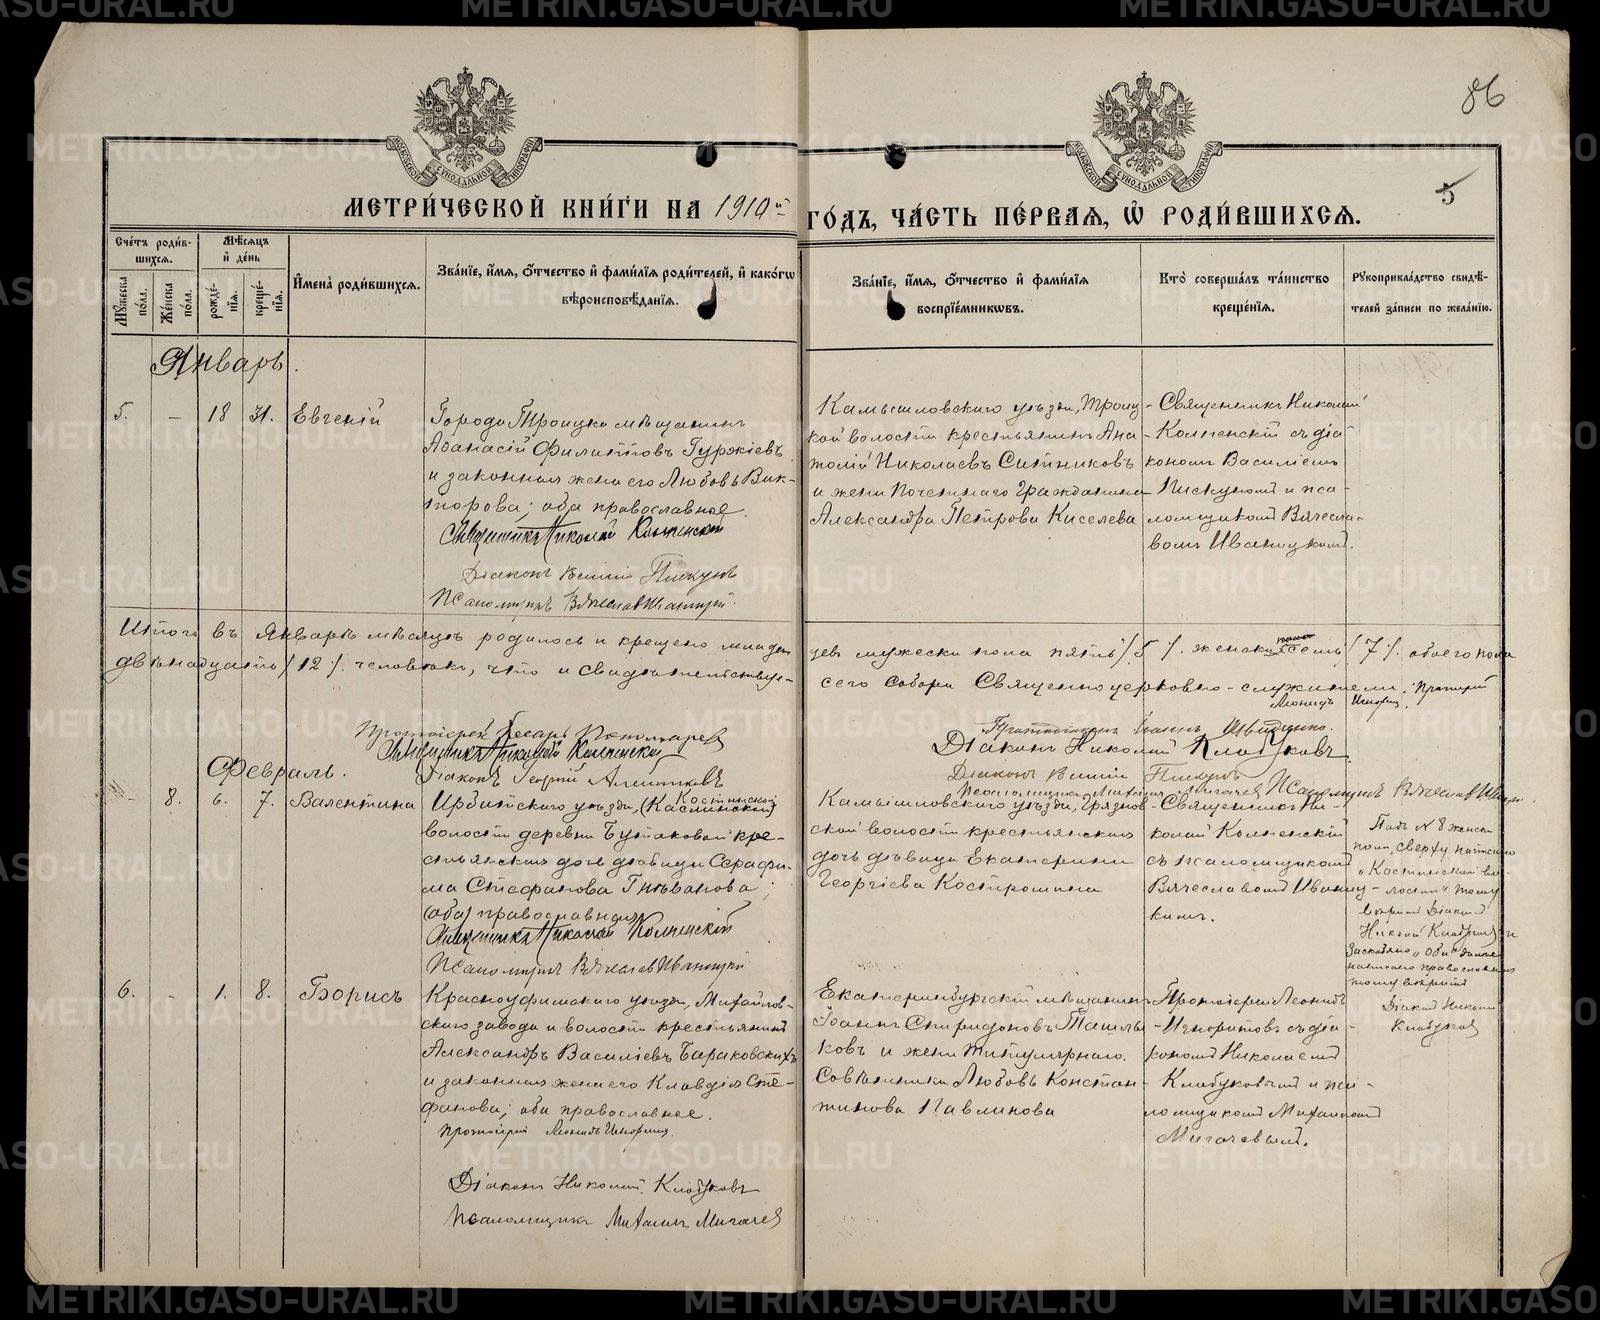 86
5
МОСКОВСКОЙ СѴНОДАЛЬНОЙ ТИПОГРАФІИ
МОСКОВСКОЙ СѴНОДАЛЬНОЙ ТИПОГРАФІИ
МЕТРИ́ЧЕСКОЙ КНИ́ГИ НА 1910й ГО́ДЪ, ЧА́СТЬ ПЕ́РВАЯ, Ѡ҆ РОДИ́ВШИХСЯ.
Сче́тъ роди́в-
шихся.
Мꙋ́жеска по́ла.
Же́нска по́ла.
Мѣ́сяцъ
и҆ де́нь
рожде́-
нїя.
креще́-
нїя.
И҆мена̀ роди́вшихся.
Зва́нїе, и҆́мя, ѻ҆́тчество и҆ фами́лїя роди́телей, и҆ како́гѡ
вѣроисповѣ́данїя.
Зва́нїе, и҆́мя, ѻ҆́тчество и҆ фами́лїя
воспрїе́мникѡвъ.
Кто̀ соверша́лъ та́инство
креще́нїя.
Рꙋкоприкла́дство свидѣ́-
телей за́писи по жела́нїю.
Январь.
5.
-
18
31.
Евгеній
Города Троицка мѣщанинъ
Аѳанасій Филипповъ Гуржіевъ
и законная жена его Любовь Вик-
торова; оба православные.
Священникъ Николай Колпенскій
Діаконъ Василій Пискуновъ
Псаломщикъ Вячеславъ Иваницкій.
Камышловскаго уѣзда, Троиц-
кой волости крестьянинъ Ана-
толій Николаевъ Ситниковъ
и жена Почетнаго Гражданина
Александра Петрова Киселева
Священникъ Николай
Колпенскій съ діа-
кономъ Василіемъ
Пискуномъ и пса-
ломщикомъ Вячесла-
вомъ Иваницкимъ.
Итого въ Январѣ мѣсяцѣ родилось и крещено младен
цевъ мужеска пола пять /5/. женска пола семь /7/. обоего пола
двѣнадцать /12/. человѣкъ, что и свидѣтельствує-
сего Собора Священноцерковно-служители: Протоіерей
Леонидъ Игноритовъ
Протоіерей Кесарь Пономаревъ
Священникъ Николай Колпенскій
Діаконъ Георгій
Діаконъ Николай Клабуковъ
Діаконъ Василій Пискуновъ
Псаломщикъ Михаилъ Мигачевъ Псаломщикъ Вячеславъ Иваницкій
Февраль.
-
8.
6.
7.
Валентина
Костинской
Ирбитскаго уѣзда, (Каслинской)
волости деревни Бутаковой кре-
стьянская дочь дѣвица Серафи-
ма Стефанова Гнѣванова;
(оба) православная
Священникъ Николай Колпенскій
Псаломщикъ Вячеславъ Иваницкій
Камышловскаго уѣзда, Грязнов-
ской волости крестьянская
дочь дѣвица Екатерина
Георгіева Костромина
Священникъ Ни-
колай Колпенскій
съ псаломщикомъ
Вячеславомъ Иваниц-
кимъ.
Подъ № 8 женска
пола, сверху написано
„Костинской во-
лости" тому
вѣрить Діаконъ
Николай Клабуковъ и
Заскоблено „оба" далѣе
написано православная
тому вѣрить
Діаконъ Николай
Клабуковъ
6.
-
1.
8.
Борисъ
Красноуфимскаго уѣзда, Михайлов-
скаго завода и волости крестьянинъ
Александръ Василіевъ Бараковскихъ
и законная жена его Клавдія Сте-
фанова; оба православные.
Протоіерей Леонидъ Игноритовъ
Діаконъ Николай Клабуковъ
Псаломщикъ Михаилъ Мигачевъ
Екатеринбургскій мѣщанинъ
Іоаннъ Спиридоновъ Ташлы-
ковъ и жена Титулярнаго
Совѣтника Любовь Констан-
тинова Павлинова
Протоіерей Леонидъ
Игноритовъ съ діа-
кономъ Николаемъ
Клабуковымъ и пса-
ломщикомъ Михаиломъ
Мигачевымъ.
METRIKI.GASO-URAL.RU